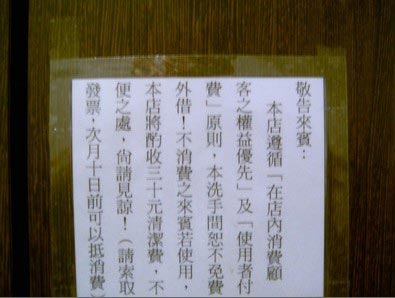 敬告來賓：
本店遵循「在店內消費顧
客之權益優先」及「使用者付
費」原則，本洗手間恕不免費
外借！不消費之來賓若使用，
本店將酌收三十元清潔費，不
便之處，尚請見諒！（請索取
發票，次月十日前可以抵消費）